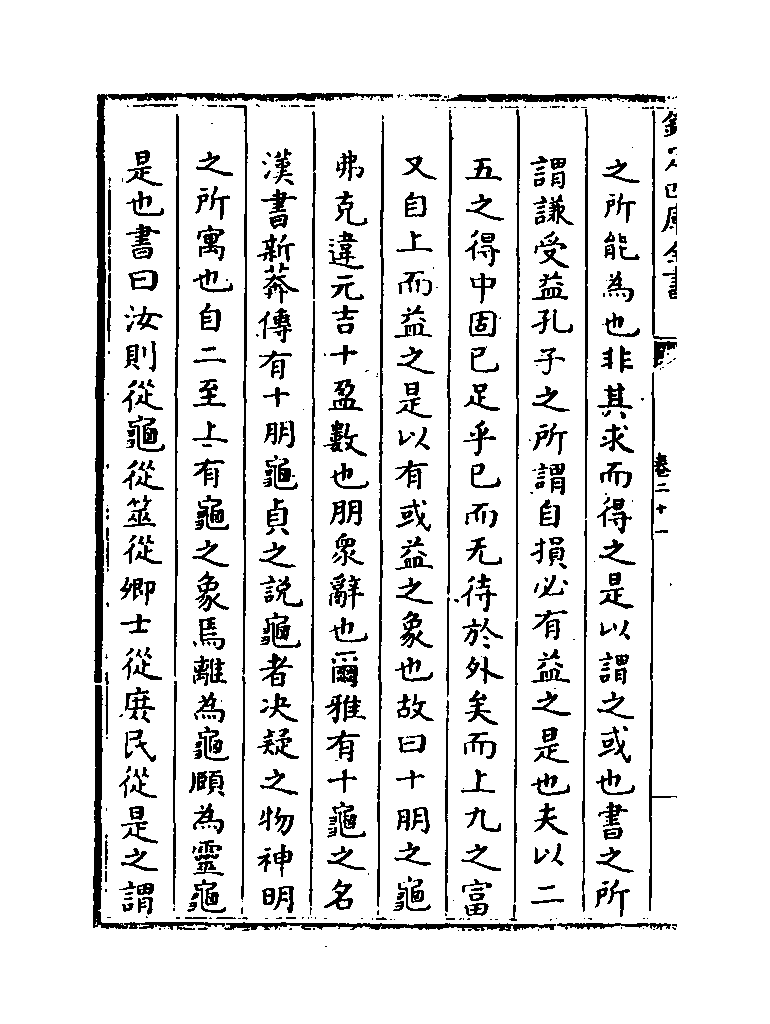 欽定四庫全書
卷二十一
之所能為也非其求而得之是以謂之或也書之所
謂謙受益孔子之所謂自損必有益之是也夫以二
五之得中固已足乎已而无待於外矣而上九之富
又自上而益之是以有或益之象也故曰十朋之龜
弗克違元吉十盈數也朋衆辭也爾雅有十龜之名
漢書新莽傳有十朋龜貞之説龜者决疑之物神明
之所寓也自二至上有龜之象焉離為龜頤為靈龜
是也書曰汝則從龜從筮從卿士從庶民從是之謂